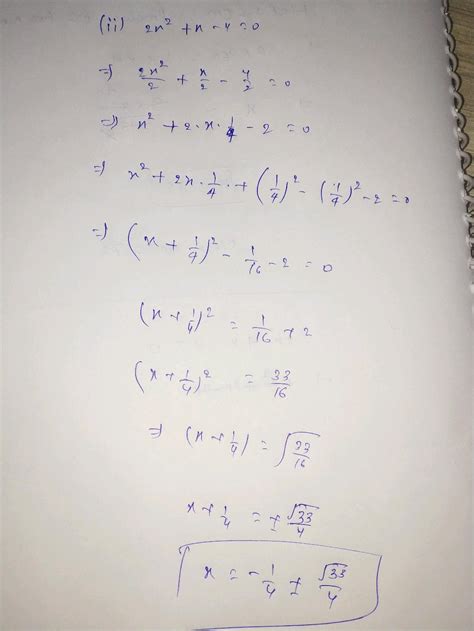 (ii) 2x² + x - 4 = 0
⇒ 2x²/2 + x/2 - 4/2 = 0
⇒ x² + 2·x·1/4 - 2 = 0
⇒ x² + 2x·1/4·+ (1/4)² - (1/4)² - 2 = 0
⇒ (x + 1/4)² - 1/16 - 2 = 0
(x + 1/4)² = 1/16 + 2
(x + 1/4)² = 33/16
⇒ (x + 1/4) = √33/16
x + 1/4 = ± √33/4
x = - 1/4 ± √33/4